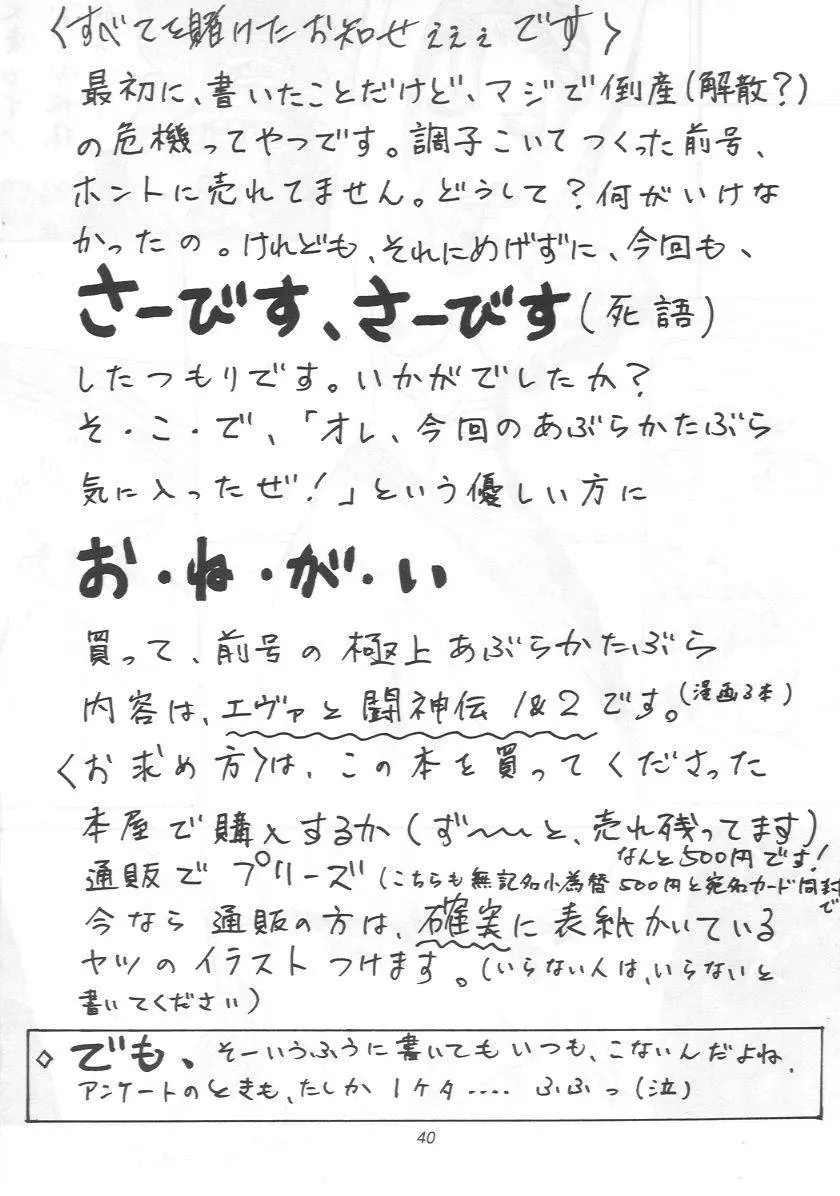 〈すべてを賭けたお知せぇぇぇです〉
最初に、書いたことだけど、マジで倒産(解散?)
の危機ってやつです。調子こいてつくった前号、
ホントに売れてません。どうして?何がいけな
かったの。けれども、それにめげずに、今回も、
さーびす、さーびす(死語)
したつもりです。いかがでしたか?
そ・こ・で、「オレ、今回のあぶらかたぶら
気に入ったぜ!」という優しい方に
お・ね・が・い
買って、前号の極上あぶらかたぶら
内容は、エヴァと闘神伝1&2です。(漫画3本)
〈お求め方〉は、この本を買ってくださった
本屋で購入するか(ず〜〜〜と、売れ残ってます)
なんと500円です!
通販でプリーズ(こちらも無記名小為替500円と宛名カード同封で
今なら通販の方は、確実に表紙かいている
ヤツのイラストつけます。(いらない人は、いらないと
書いてください)
◇でも、そーいうふうに書いてもいつも、こないんだよね、
アンケートのときも、たしか1ケタ.... ふふっ(泣)
40